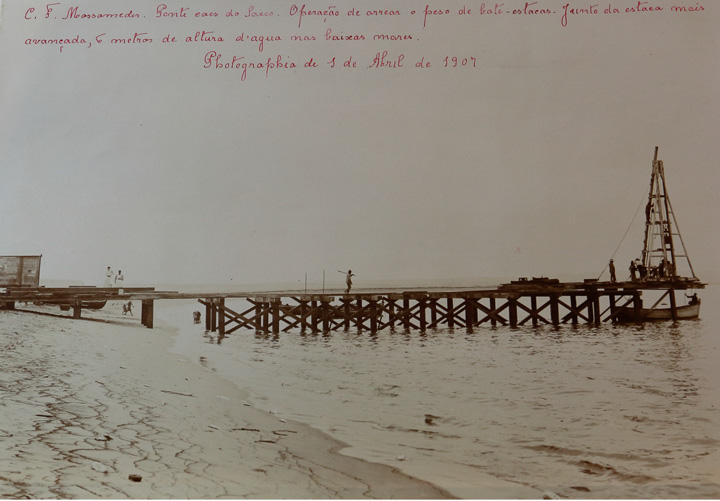 C. F. Mossamedes. Ponte caes do Sacco. Operação de arrear o peso de bate-estacas. Junto da estaca mais
avançada, 6 metros de altura d'agua nas baixas mares.
Photographia de 1 de Abril de 1907